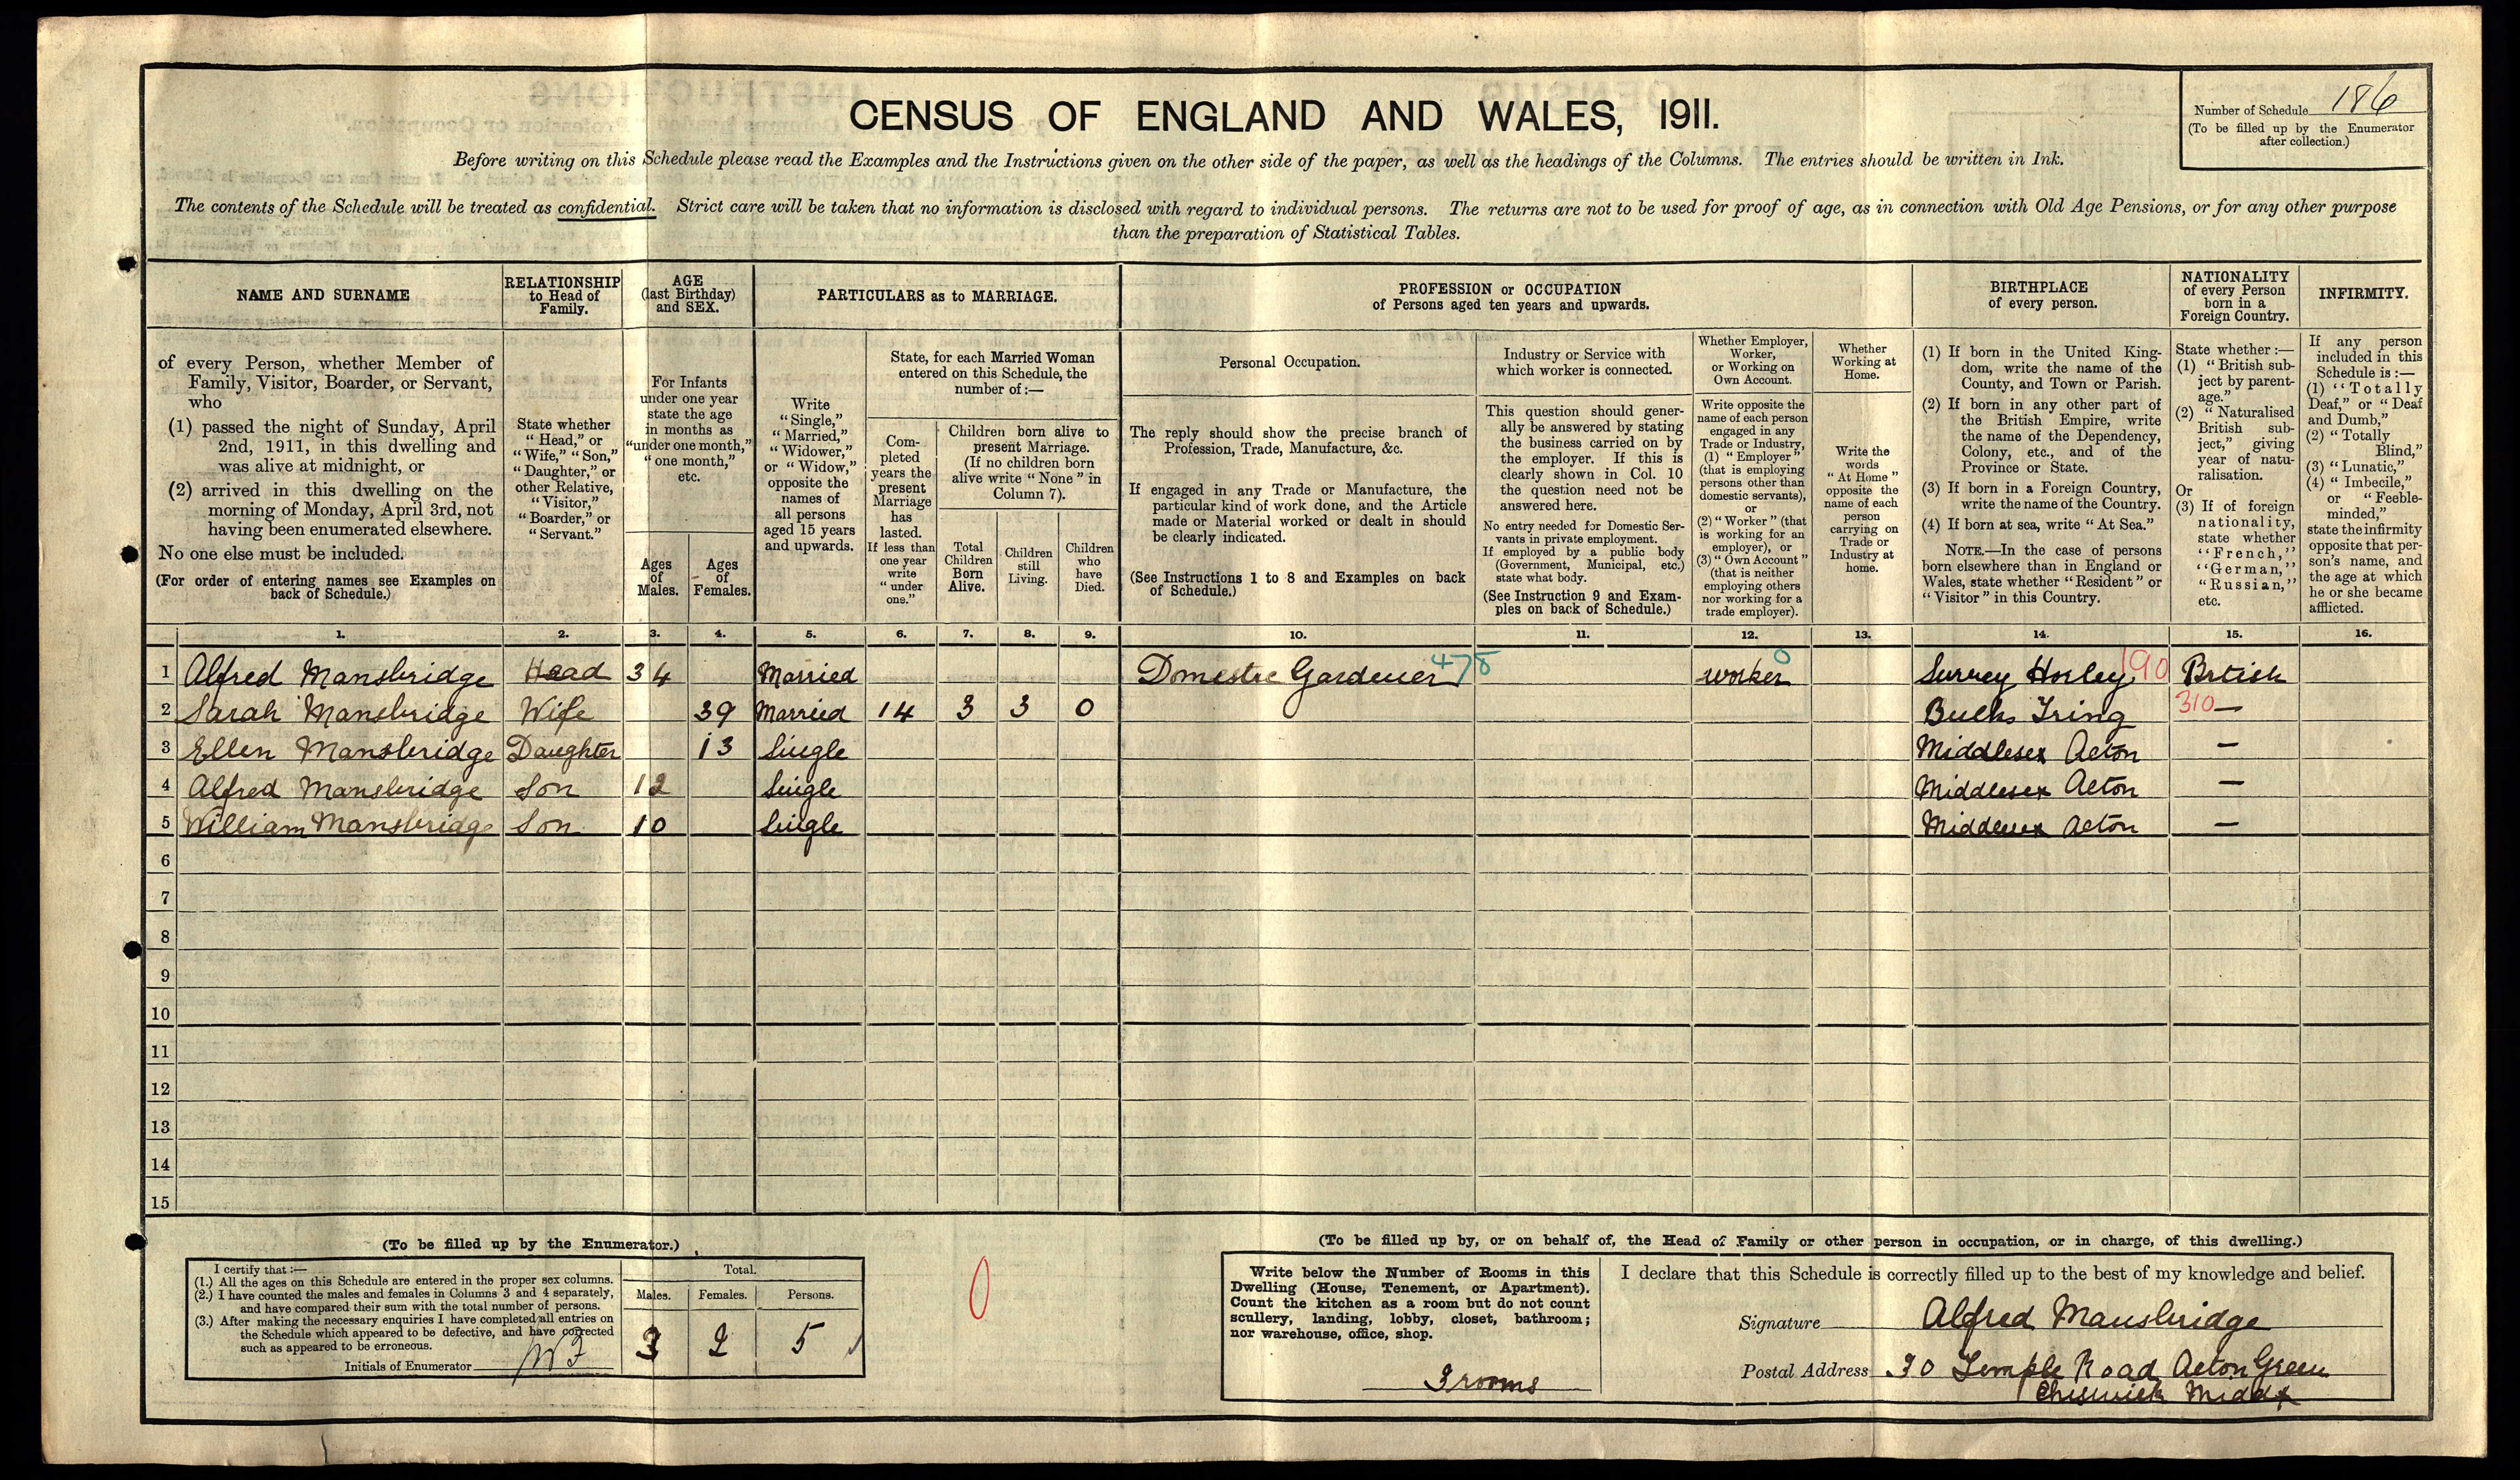 CENSUS OF ENGLAND AND WALES, 1911.
Number of Schedule 186
(To be filled up by the Enumerator
after collection.)
Before writing on this Schedule please read the Examples and the Instructions given on the other side of the paper, as well as the headings of the Columns. The entries should be written in Ink.
The contents of the Schedule will be treated as confidential. Strict care will be taken that no information is disclosed with regard to individual persons. The returns are not to be used for proof of age, as in connection with Old Age Pensions, or for any other purpose
than the preparation of Statistical Tables.
NAME AND SURNAME
of every Person, whether Member of
Family, Visitor, Boarder, or Servant,
who
(1) passed the night of Sunday, April
2nd, 1911, in this dwelling and
was alive at midnight, or
(2) arrived in this dwelling on the
morning of Monday, April 3rd, not
having been enumerated elsewhere.
No one else must be included.
(For order of entering names see Examples on
back of Schedule.)
RELATIONSHIP
to Head of
Family.
State whether
"Head," or
"Wife," "Son,"
"Daughter," or
other Relative,
"Visitor,"
"Boarder," or
"Servant."
AGE
(last Birthday)
and SEX.
For Infants
under one year
state the age
in months as
"under one month,"
"one month,"
etc.
Ages
of
Males.
Ages
of
Females.
PARTICULARS as to MARRIAGE.
Write
"Single,"
"Married,"
"Widower,"
or "Widow,"
opposite the
names of
all persons
aged 15 years
and upwards.
State, for each Married Woman
entered on this Schedule, the
number of:—
Com-
pleted
years the
present
Marriage
has
lasted.
If less than
one year
write
"under
one."
Children born alive to
present Marriage.
(If no children born
alive write "None" in
Column 7).
Total
Children
Born
Alive.
Children
still
Living.
Children
who
have
Died.
PROFESSION or OCCUPATION
of Persons aged ten years and upwards.
Personal Occupation.
The reply should show the precise branch of
Profession, Trade, Manufacture, &c.
If engaged in any Trade or Manufacture, the
particular kind of work done, and the Article
made or Material worked or dealt in should
be clearly indicated.
(See Instructions 1 to 8 and Examples on back
of Schedule.)
Industry or Service with
which worker is connected.
This question should gener-
ally be answered by stating
the business carried on by
the employer. If this is
clearly shown in Col. 10
the question need not be
answered here.
No entry needed for Domestic Ser-
vants in private employment.
If employed by a public body
(Government, Municipal, etc.)
state what body.
(See Instruction 9 and Exam-
ples on back of Schedule.)
Whether Employer,
Worker,
or Working on
Own Account.
Write opposite the
name of each person
engaged in any
Trade or Industry,
(1) "Employer"
(that is employing
persons other than
domestic servants),
or
(2) "Worker" (that
is working for an
employer), or
(3) "Own Account"
(that is neither
employing others
nor working for a
trade employer).
Whether
Working at
Home.
Write the
words
"At Home"
opposite the
name of each
person
carrying on
Trade or
Industry at
home.
BIRTHPLACE
of every person.
(1) If born in the United King-
dom, write the name of the
County, and Town or Parish.
(2) If born in any other part of
the British Empire, write
the name of the Dependency,
Colony, etc., and of the
Province or State.
(3) If born in a Foreign Country,
write the name of the Country.
(4) If born at sea, write "At Sea."
NOTE.—In the case of persons
born elsewhere than in England or
Wales, state whether "Resident" or
"Visitor" in this Country.
NATIONALITY
of every Person
born in a
Foreign Country.
State whether:—
(1) "British sub-
ject by parent-
age."
(2) "Naturalised
British sub-
ject," giving
year of natu-
ralisation.
Or
(3) If of foreign
nationality,
state whether
"French,"
"German,"
"Russian,"
etc.
INFIRMITY.
If any person
included in this
Schedule is:—
(1) "Totally
Deaf," or "Deaf
and Dumb,"
(2) "Totally
Blind,"
(3) "Lunatic,"
(4) "Imbecile,"
or "Feeble-
minded,"
state the infirmity
opposite that per-
son's name, and
the age at which
he or she became
afflicted.
1. 2. 3. 4. 5. 6. 7. 8. 9. 10. 11. 12. 13. 14. 15. 16.
1 Alfred Mansbridge Head 34 Married Domestic Gardener 478 worker 0 Surrey Horley 190 British
2 Sarah Mansbridge Wife 39 Married 14 3 3 0 Bucks Tring 310 —
3 Ellen Mansbridge Daughter 13 Single Middlesex Acton —
4 Alfred Mansbridge Son 12 Single Middlesex Acton —
5 William Mansbridge Son 10 Single Middlesex Acton —
6
7
8
9
10
11
12
13
14
15
(To be filled up by the Enumerator.)
I certify that:—
(1.) All the ages on this Schedule are entered in the proper sex columns.
(2.) I have counted the males and females in Columns 3 and 4 separately,
and have compared their sum with the total number of persons.
(3.) After making the necessary enquiries I have completed all entries on
the Schedule which appeared to be defective, and have corrected
such as appeared to be erroneous.
Initials of Enumerator
Total.
Males. Females. Persons.
3 2 5
0
(To be filled up by, or on behalf of, the Head of Family or other person in occupation, or in charge, of this dwelling.)
Write below the Number of Rooms in this
Dwelling (House, Tenement, or Apartment).
Count the kitchen as a room but do not count
scullery, landing, lobby, closet, bathroom;
nor warehouse, office, shop.
3 rooms
I declare that this Schedule is correctly filled up to the best of my knowledge and belief.
Signature Alfred Mansbridge
Postal Address 30 Temple Road Acton Green
Chiswick Middx